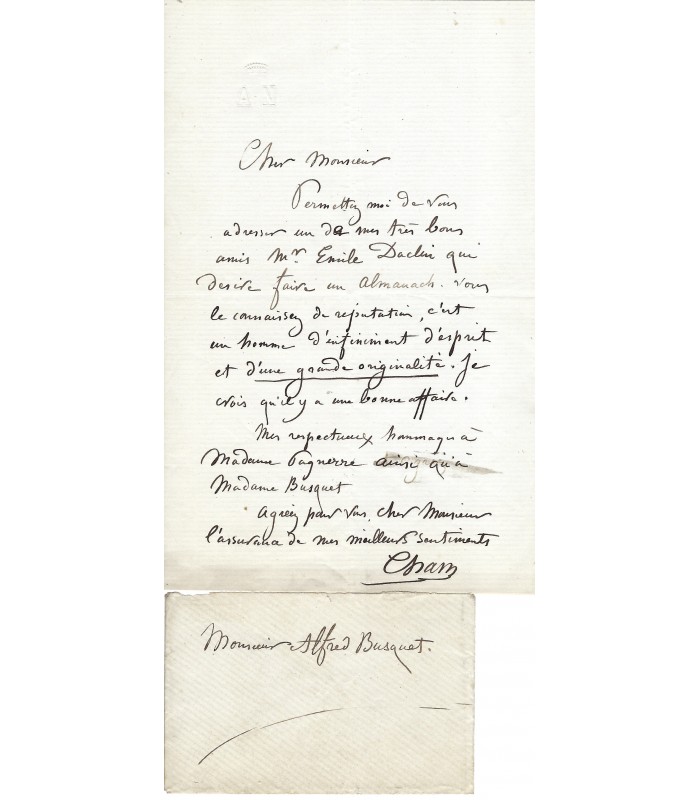 Cher Monsieur
Permettez moi de vous
adresser un de mes très bons
amis Mr. Emile Daclin qui
desire faire un Almanach. Vous
le connaissez de reputation, c'est
un homme d'infiniment d'esprit
et d'une grande originalité. Je
crois qu'il y a une bonne affaire.
Mes respectueux hommages à
Madame Pagnerre ainsi qu'à
Madame Busquet
Agréez pour vous, cher Monsieur
l'assurance de mes meilleurs sentiments
Cham
Monsieur Alfred Busquet.